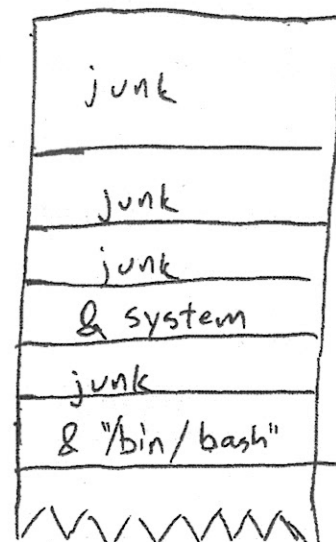 junk
junk
junk
& system
junk
& "/bin/bash"